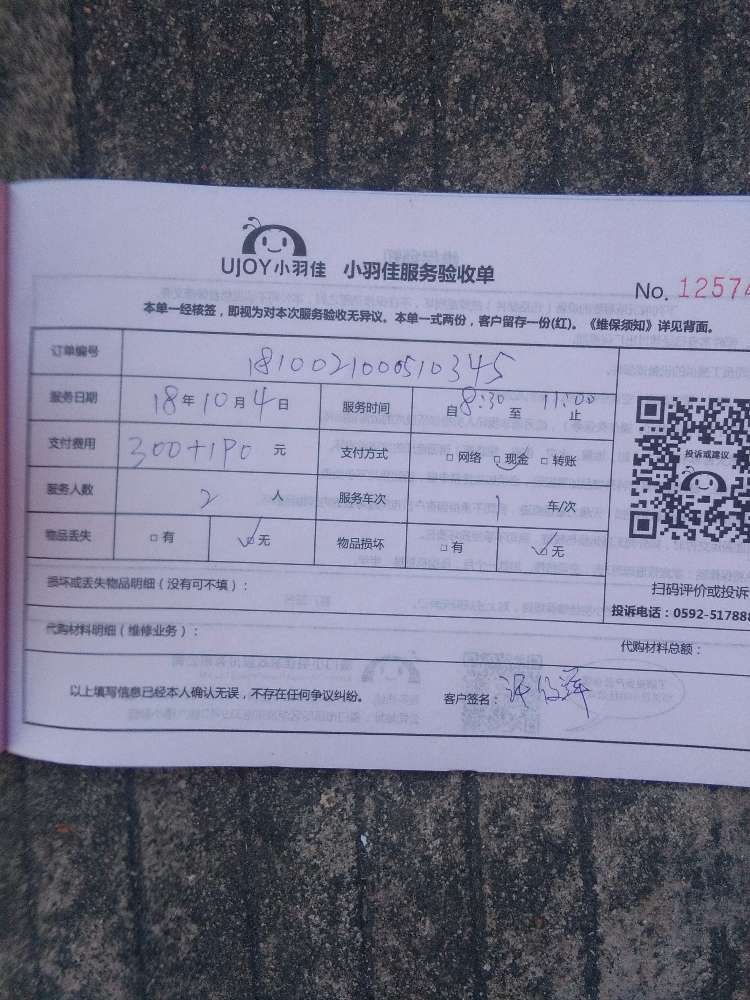 UJOY小羽佳 小羽佳服务验收单
No. 12574
本单一经核签，即视为对本次服务验收无异议。本单一式两份，客户留存一份(红)。《维保须知》详见背面。
订单编号 181002100510345
服务日期 18年10月4日 服务时间 自8:30至11:00止
支付费用 300+190元 支付方式 □网络 □现金 □转账
投诉或建议
服务人数 2人 服务车次 1车/次
物品丢失 □有 □无 物品损坏 □有 □无
扫码评价或投诉
损坏或丢失物品明细（没有可不填）：
投诉电话：0592-51788
代购材料明细（维修业务）：
代购材料总额：
以上填写信息已经本人确认无误，不存在任何争议纠纷。 客户签名：